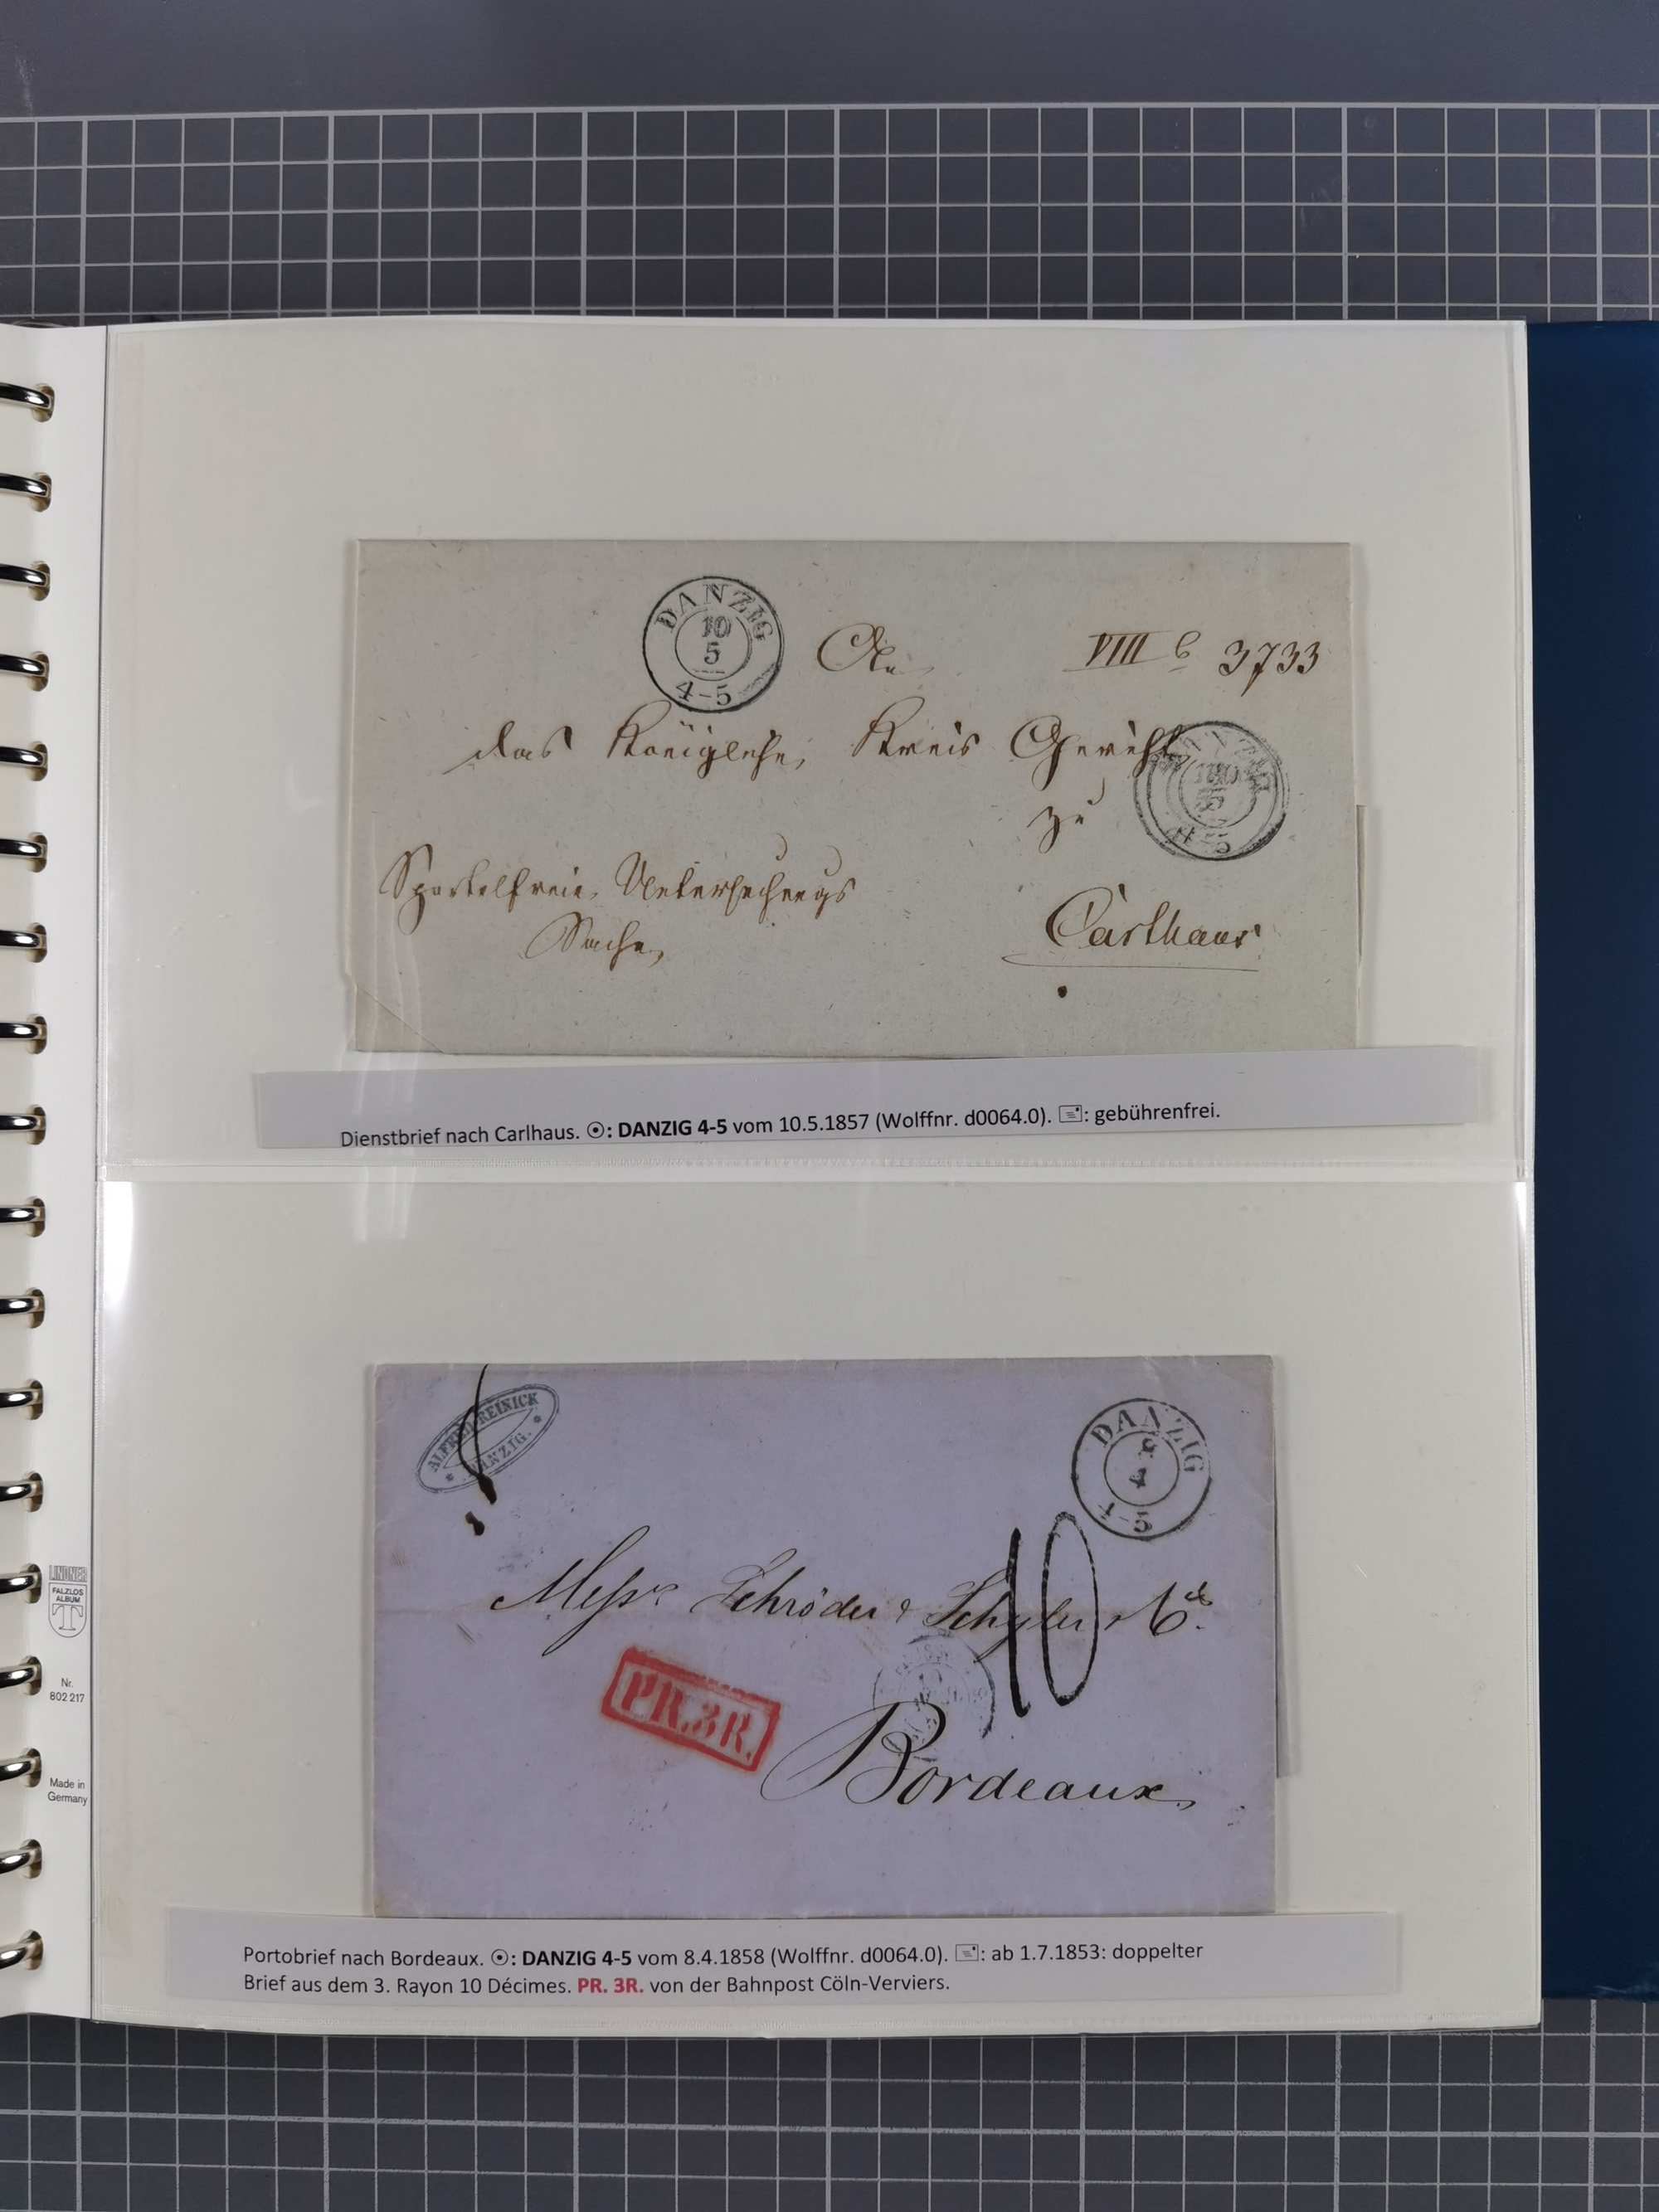 DANZIG
10
5
4-5
An
VIII b 3733
das Königliche Kreis Gericht
DANZIG
10
5
4-5
zu
Sportelfreie Untersuchungs
Sache
Carthaus
Dienstbrief nach Carlhaus. ☉: DANZIG 4-5 vom 10.5.1857 (Wolffnr. d0064.0). 🖃: gebührenfrei.
ALFRED REINICK
* DANZIG. *
DANZIG
8
4
4-5
10
Messrs Schröder & Schyler & Co.
PR.3R.
Bordeaux
Portobrief nach Bordeaux. ☉: DANZIG 4-5 vom 8.4.1858 (Wolffnr. d0064.0). 🖃: ab 1.7.1853: doppelter
Brief aus dem 3. Rayon 10 Décimes. PR. 3R. von der Bahnpost Cöln-Verviers.
LINDNER
FALZLOS
ALBUM
T
Nr.
802 217
Made in
Germany